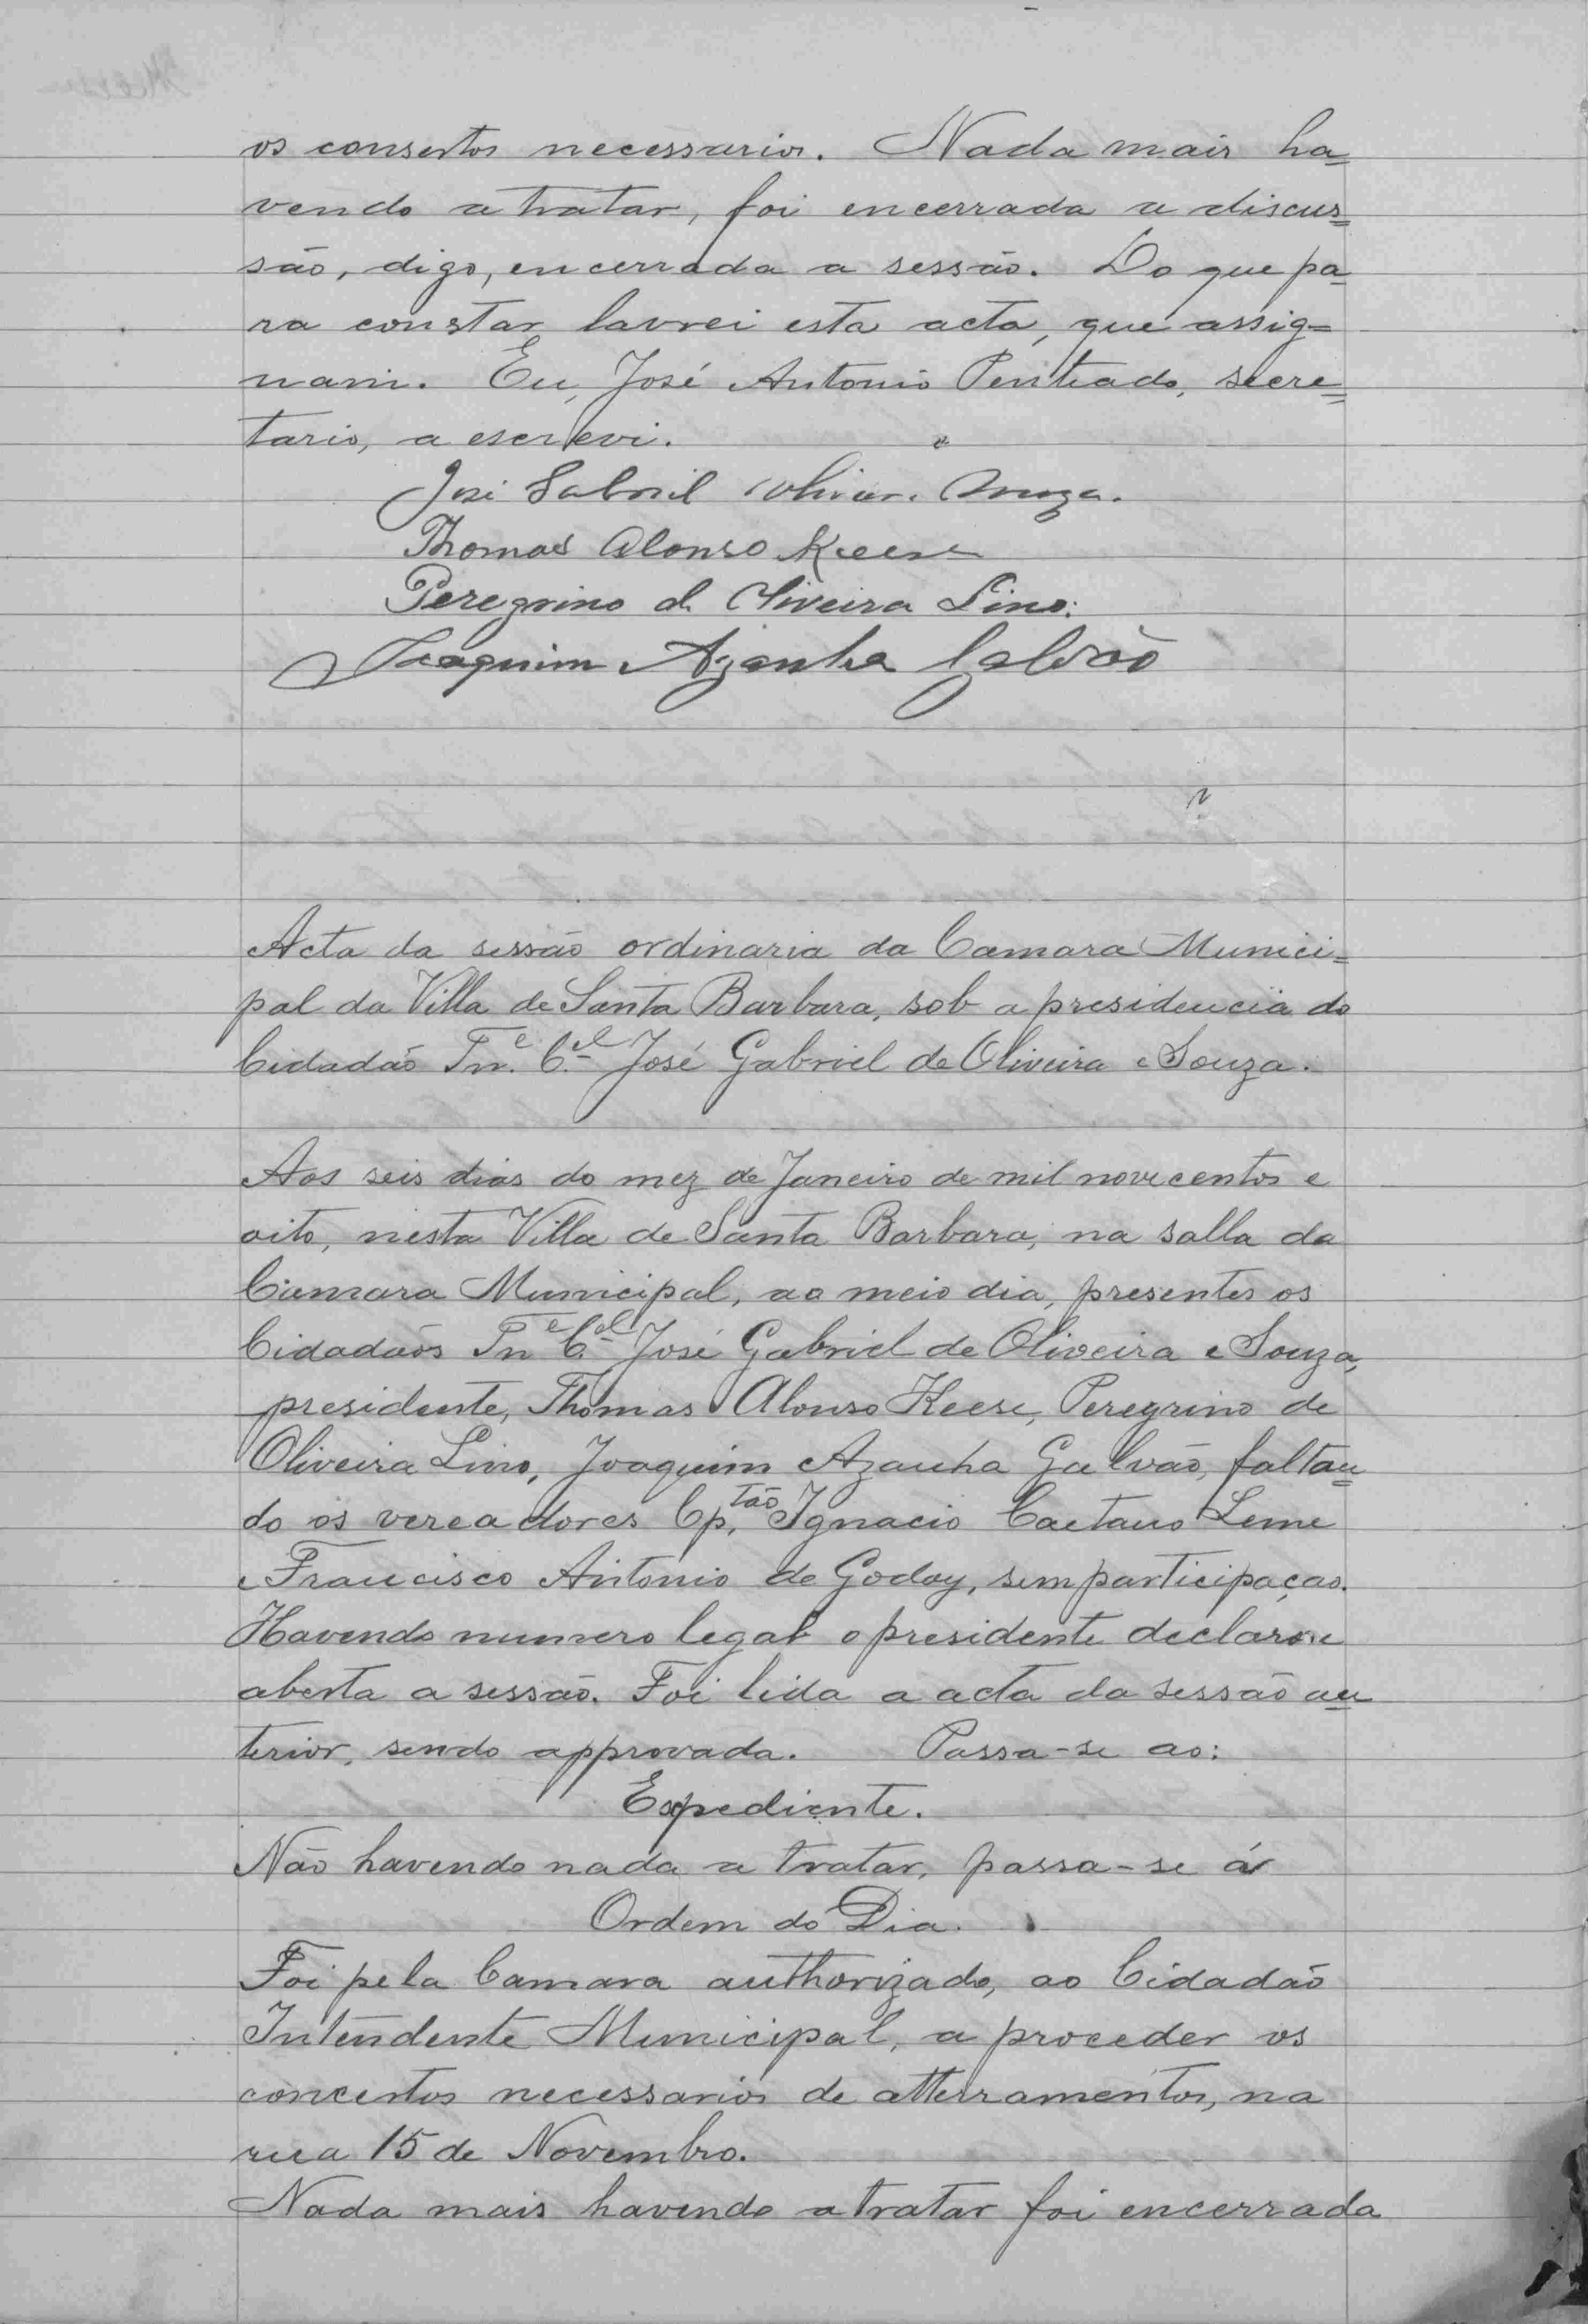 os consertos necessarios. Nada mais ha=
vendo a tratar, foi encerrada a discus=
são, digo, encerrada a sessão. Do que pa=
ra constar lavrei esta acta, que assig=
nam. Eu, José Antonio Penteado, secre=
tario, a escrevi.
José Gabriel Oliveir. Souza.
Thomas Alonso Keese
Peregrino de Oliveira Lino.
Joaquim Azanha Galvão
Acta da sessão ordinaria da Camara Munici=
pal da Villa de Santa Barbara, sob a presidencia do
Cidadão Tn.e C.el José Gabriel de Oliveira e Souza.
Aos seis dias do mez de Janeiro de mil novecentos e
oito, nesta Villa de Santa Barbara, na salla da
Camara Municipal, ao meio dia, presentes os
Cidadãos Tn.e C.el José Gabriel de Oliveira e Souza,
presidente, Thomas Alonso Keese, Peregrino de
Oliveira Lino, Joaquim Azanha Galvão, faltan=
do os vereadores Cp.tão Ignacio Caetano Leme
e Francisco Antonio de Godoy, sem participaçao.
Havendo numero legal o presidente declarou
aberta a sessão. Foi lida a acta da sessão an=
terior, sendo approvada. Passa-se ao:
Expediente.
Não havendo nada a tratar, passa-se á
Ordem do Dia.
Foi pela Camara authorizado, ao Cidadão
Intendente Municipal, a proceder os
concertos necessarios de atterramentos, na
rua 15 de Novembro.
Nada mais havendo a tratar foi encerrada